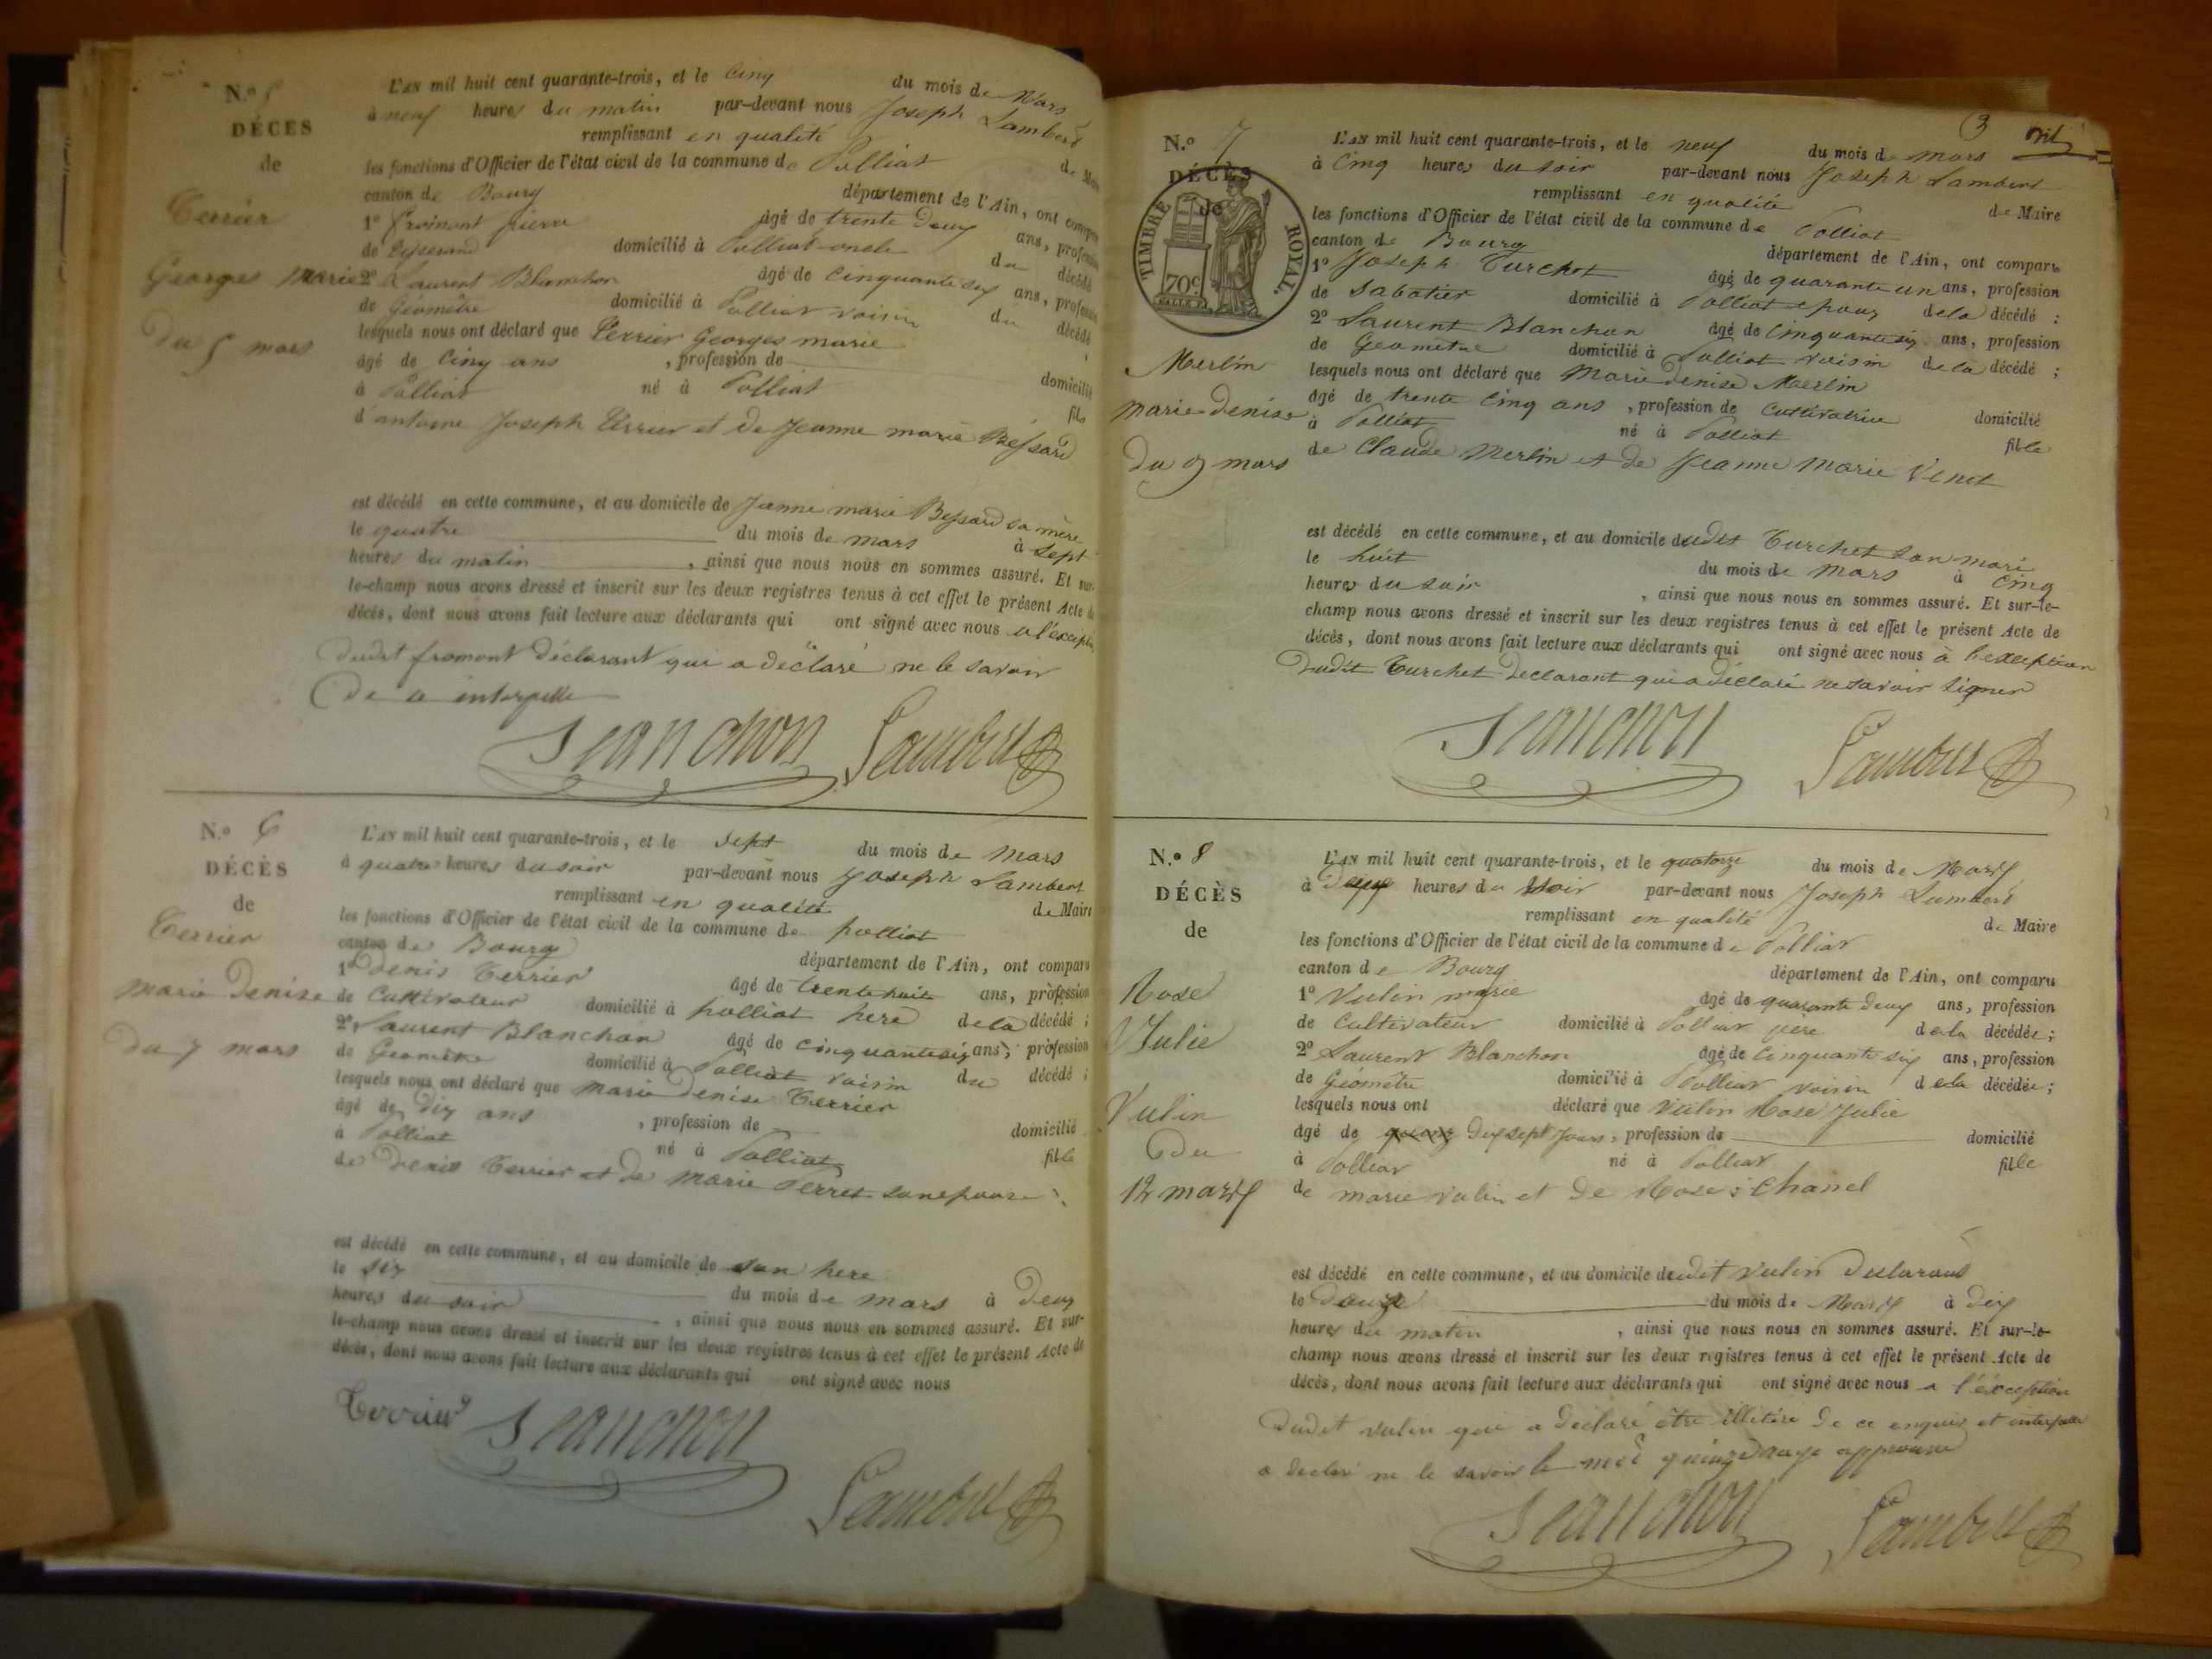 N.º 5
DÉCES
de
Terrier
Georges Marie
du 5 mars
L'AN mil huit cent quarante-trois, et le Cinq du mois de Mars
à neuf heures du matin par-devant nous Joseph Lambert
remplissant en qualité de Maire
les fonctions d'Officier de l'état civil de la commune de Polliat
canton de Bourg département de l'Ain, ont comparu
1º fromont pierre âgé de trente deux ans, profession
de tisserand domicilié à Polliat oncle du décédé
2º Laurent Blanchon âgé de cinquante six ans, profession
de Géomêtre domicilié à Polliat voisin du décédé
lesquels nous ont déclaré que Terrier Georges marie
âgé de Cinq ans , profession de domicilié
à Polliat né à Polliat fils
d'antoine Joseph Terrier et de Jeanne marie Bessard
est décédé en cette commune, et au domicile de Jeanne marie Bessard sa mère
le quatre du mois de mars à sept
heures du matin , ainsi que nous nous en sommes assuré. Et sur-
le-champ nous avons dressé et inscrit sur les deux registres tenus à cet effet le présent Acte de
décès, dont nous avons fait lecture aux déclarants qui ont signé avec nous a l'exception
dudit fromont déclarant qui a déclaré ne le savoir
de ce interpellé
Blanchon Lambert
N.º 6
DÉCÈS
de
Terrier
marie Denise
du 7 mars
L'AN mil huit cent quarante-trois, et le sept du mois de Mars
à quatre heures du soir par-devant nous Joseph Lambert
remplissant en qualité de Maire
les fonctions d'Officier de l'état civil de la commune de polliat
canton de Bourg département de l'Ain, ont comparu
1º Denis Terrier âgé de trente huit ans, profession
de Cultivateur domicilié à polliat père de la décédé ;
2º Laurent Blanchon âgé de cinquante six ans, profession
de Geomêtre domicilié à Polliat voisin du décédé ;
lesquels nous ont déclaré que marie Denise Terrier
âgé de Dix ans , profession de domicilié
à Polliat né à Polliat fille
de Denis Terrier et de Marie Perret son epouse
est décédé en cette commune, et au domicile de son père
le six du mois de mars à Deux
heures du soir , ainsi que nous nous en sommes assuré. Et sur-
le-champ nous avons dressé et inscrit sur les deux registres tenus à cet effet le présent Acte de
décès, dont nous avons fait lecture aux déclarants qui ont signé avec nous
Terrier Blanchon
Lambert
3
N.º 7
DÉCÈS
de
TIMBRE ROYAL.
70c.
Merlin
marie-denise
Du 9 mars
L'AN mil huit cent quarante-trois, et le neuf du mois de mars
à Cinq heures du soir par-devant nous Joseph Lambert
remplissant en qualité de Maire
les fonctions d'Officier de l'état civil de la commune de Polliat
canton de Bourg département de l'Ain, ont comparu
1º Joseph Turchet âgé de quarante un ans, profession
de Sabotier domicilié à Polliat epoux de la décédé :
2º Laurent Blanchon âgé de cinquante six ans, profession
de Geometre domicilié à Polliat voisin de la décédé ;
lesquels nous ont déclaré que Marie denise Merlin
âgé de trente cinq ans , profession de Cultivatrice domicilié
à Polliat né à Polliat fille
de Claude Merlin et de Jeanne Marie Venet
est décédé en cette commune, et au domicile dudit Turchet son mari
le huit du mois de Mars à Cinq
heures du soir , ainsi que nous nous en sommes assuré. Et sur-le-
champ nous avons dressé et inscrit sur les deux registres tenus à cet effet le présent Acte de
décès, dont nous avons fait lecture aux déclarants qui ont signé avec nous à l'exception
Dudit Turchet Declarant qui a déclaré ne savoir signer
Blanchon Lambert
N.º 8
DÉCÈS
de
Rose
Julie
Vulin
du
12 mars
L'AN mil huit cent quarante-trois, et le quatorze du mois de Mars
à heures du soir par-devant nous Joseph Lambert
remplissant en qualité de Maire
les fonctions d'Officier de l'état civil de la commune de Polliat
canton de Bourg département de l'Ain, ont comparu
1º Vulin marie âgé de quarante deux ans, profession
de Cultivateur domicilié à Polliat pere de la décédée ;
2º Laurent Blanchon âgé de cinquante six ans, profession
de Géomêtre domicilié à Polliat voisin de la décédée ;
lesquels nous ont déclaré que Vulin Rose Julie
âgé de Dix sept jours, profession de domicilié
à Polliat né à Polliat fille
de marie Vulin et de Rose Chanel
est décédé en cette commune, et au domicile dudit Vulin Declarant
le Douze du mois de Mars à dix
heures du matin , ainsi que nous nous en sommes assuré. Et sur-le-
champ nous avons dressé et inscrit sur les deux registres tenus à cet effet le présent Acte de
décès, dont nous avons fait lecture aux déclarants qui ont signé avec nous a l'exception
Dudit Vulin qui a déclaré être illitéré de ce enquis et interpellé
a declaré ne le savoir le mot quinze rayé approuvé
Blanchon Lambert